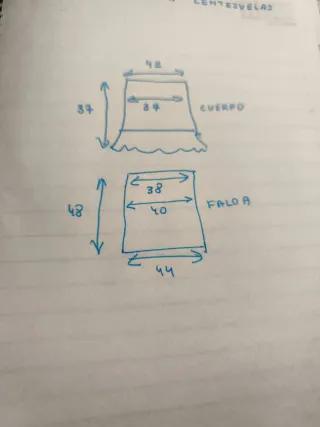 LENTEJUELAS
48
37
37
CUERPO
38
48
40
FALDA
44